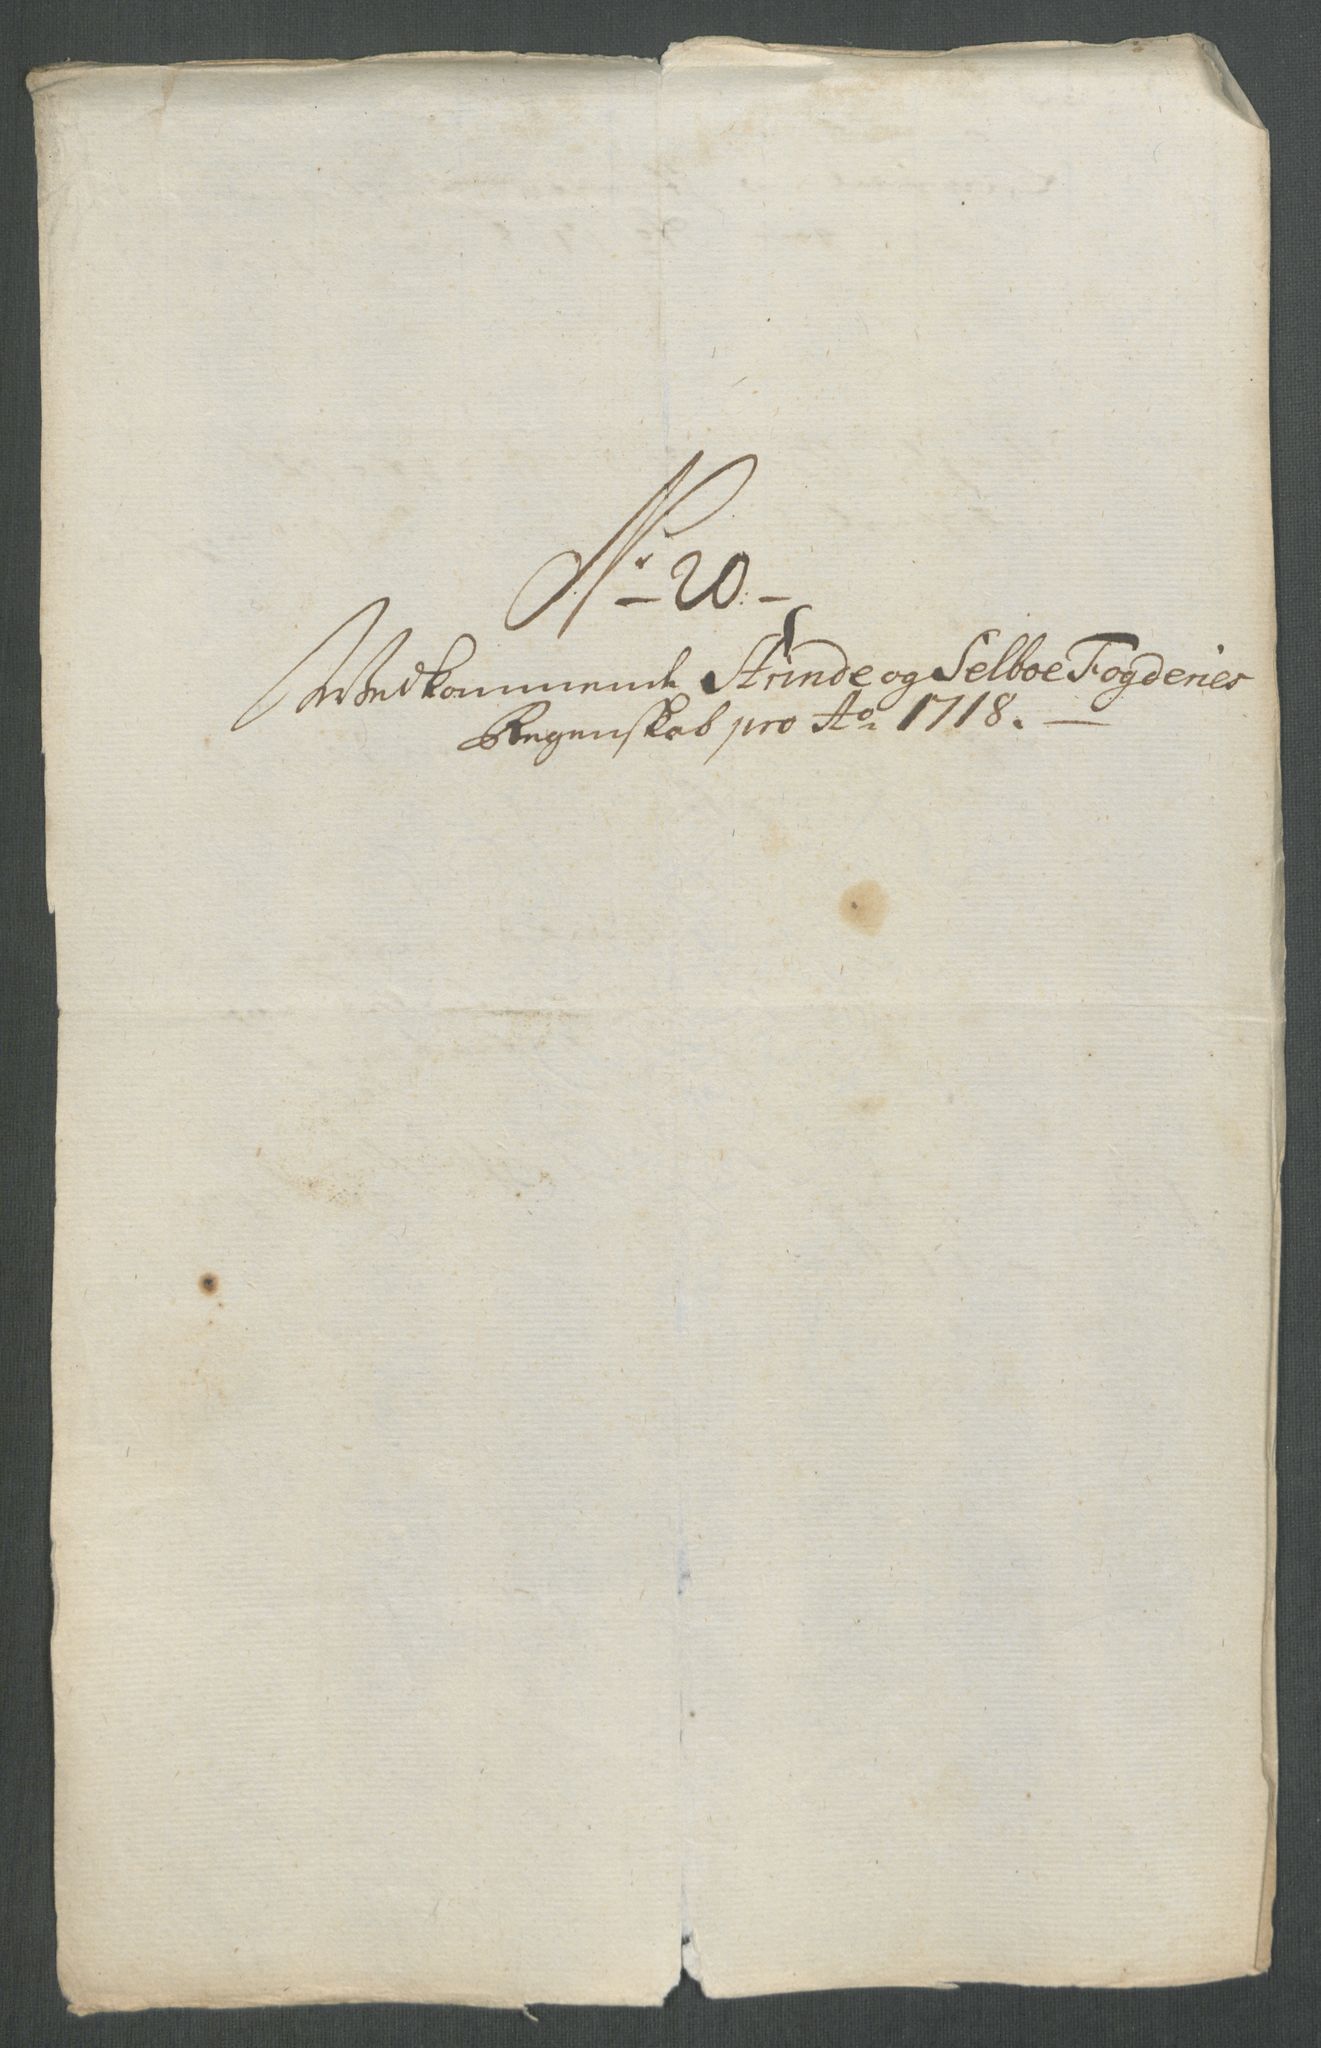 Nr 20.
Vedkommende Strinde og Selboe Fogderies
Regenskab pro Ao 1718.